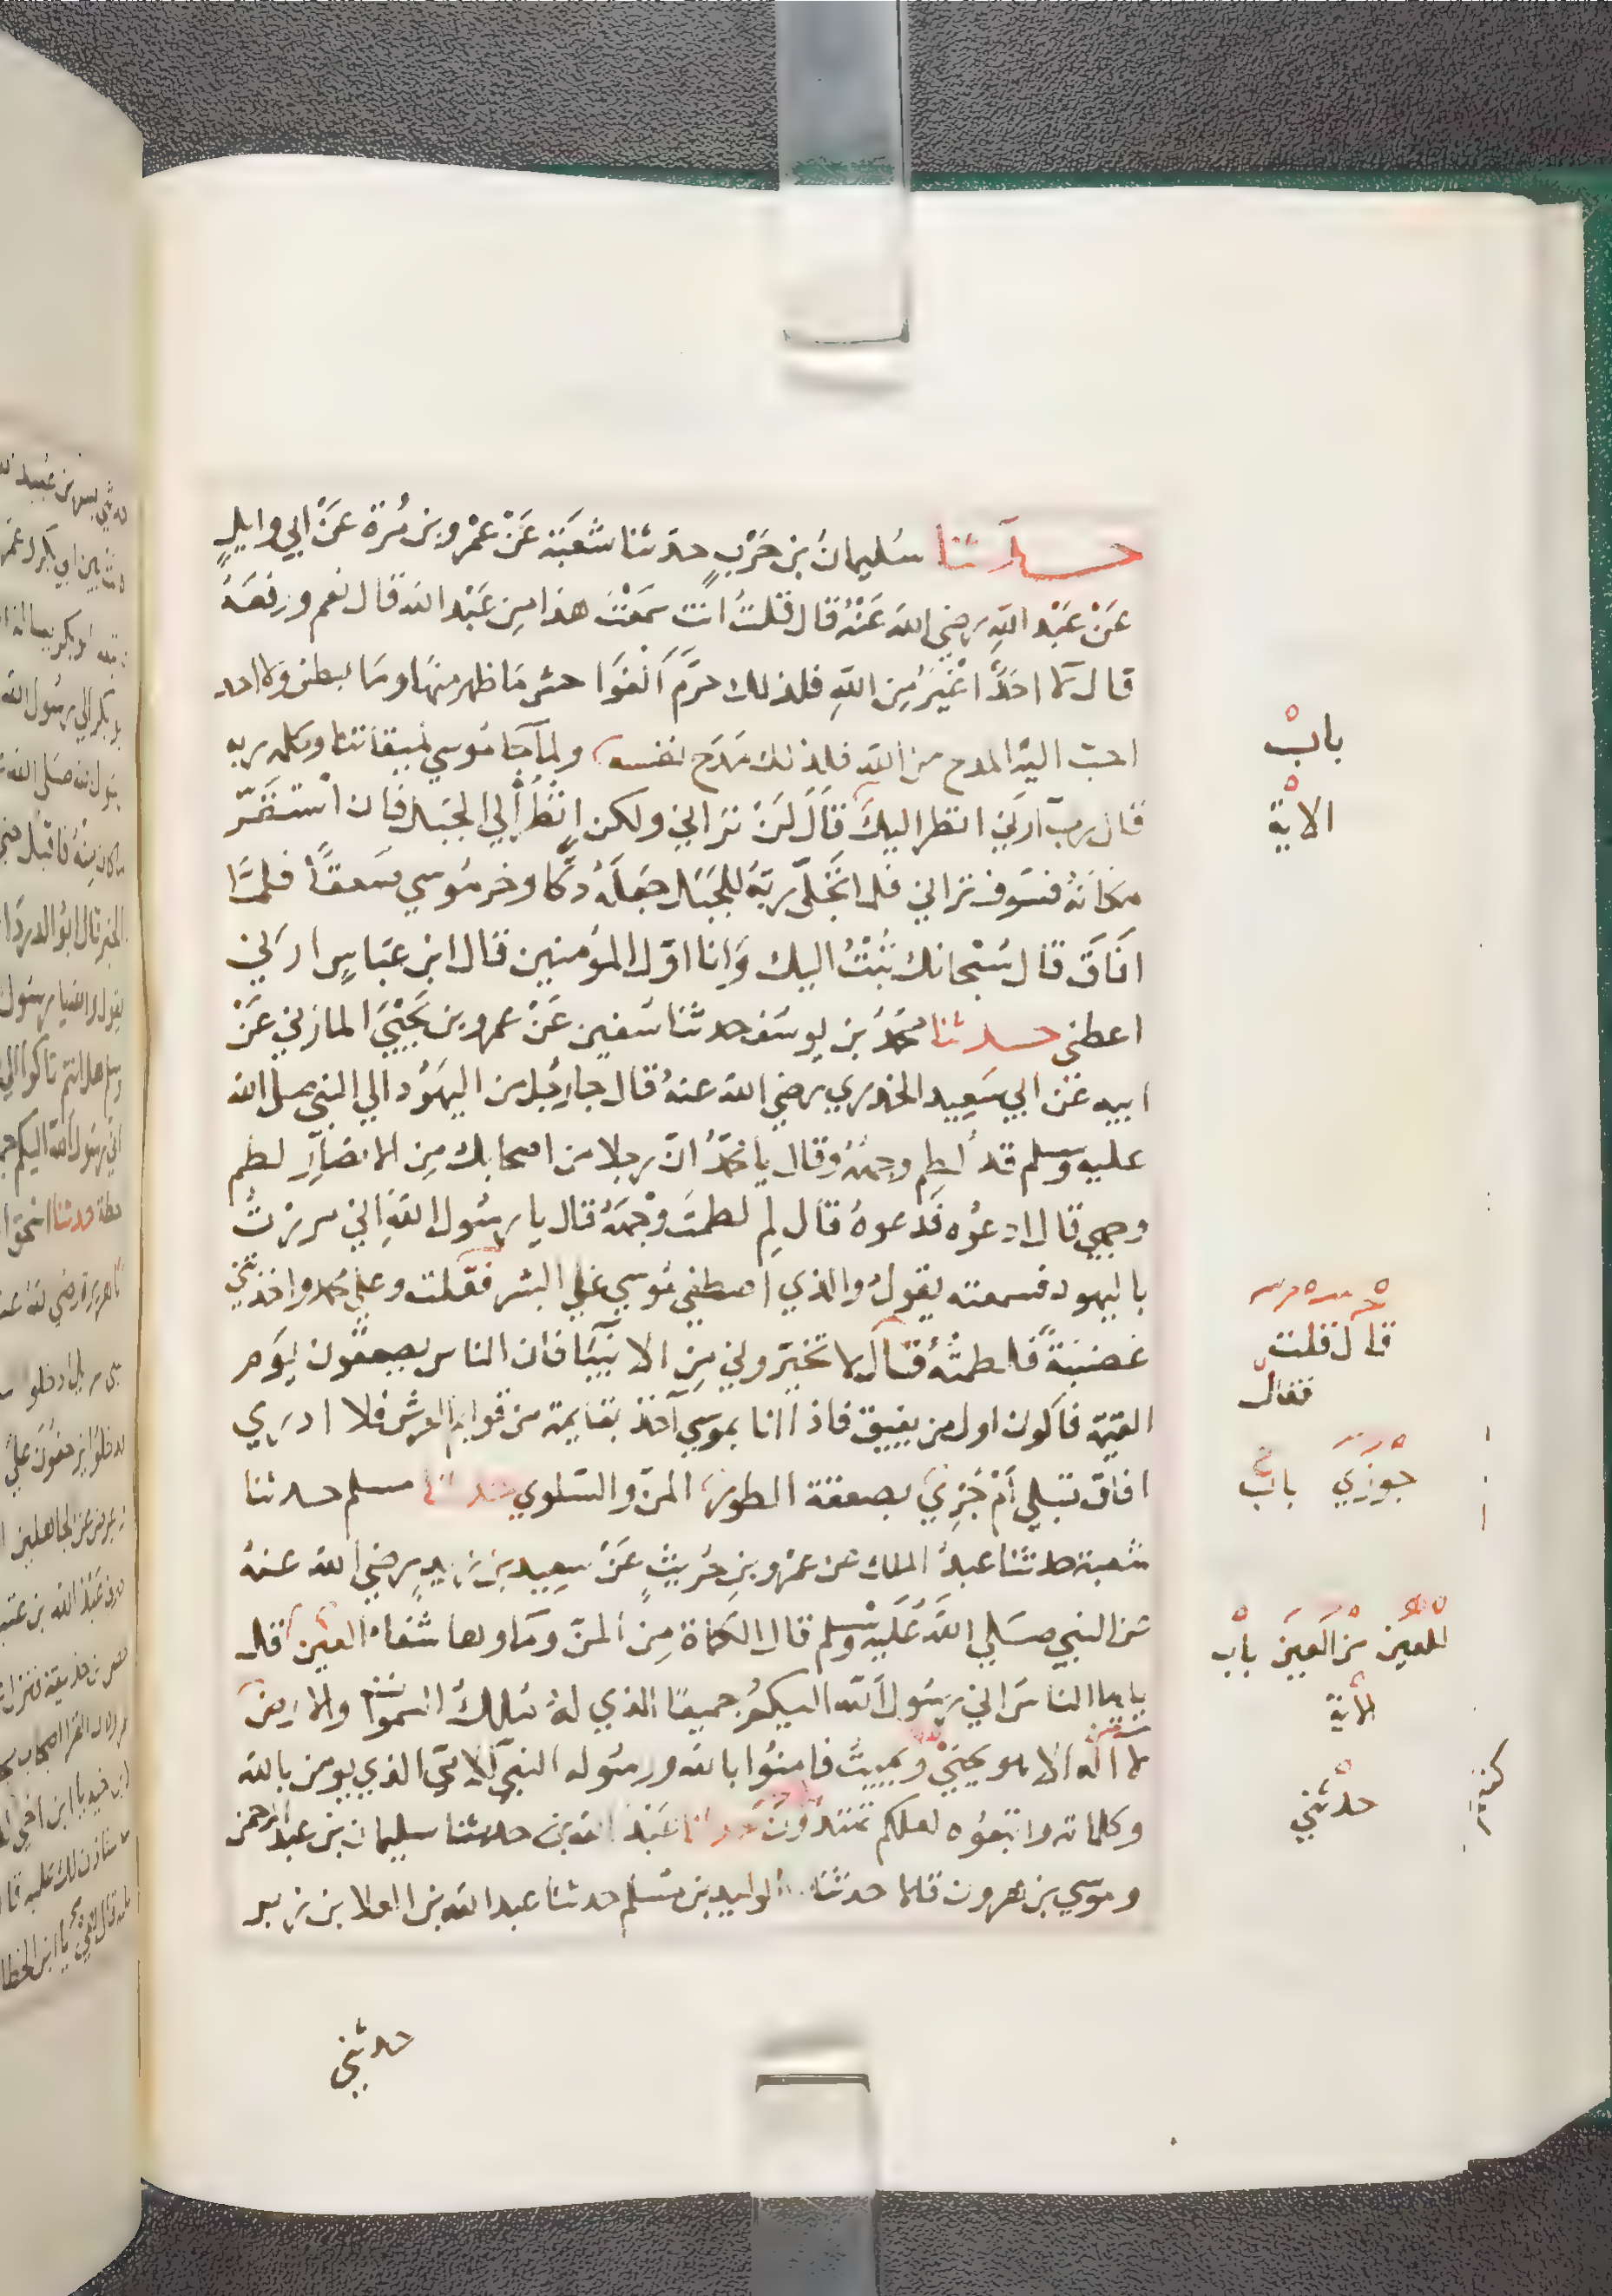 حدثنا سُليمانُ بن حَرْبٍ حدثنا شعَبَة عَنْ عَمْرو بن مُرّة عَنْ ابي وايلٍ
عَنْ عَبْد اللهِ رضي الله عَنْهُ قال قلتُ انت سَمعْتَ هذا مِن عَبْد الله قال نعم ورفعَهُ
قال لا احَدٌ اغْيَرُ مِن اللهِ فلذلك حرَّمَ الفَوَاحش مَا ظهر منهَا ومَا بطن ولا احد
احب اليْه المدح من الله فلذلك مَدَح نفسه ولمّا جَا مُوسي لميقاتنا وكلمه ربه
قال رب ارَني انظر اليكَ قالَ لَنْ تراني ولكن انظُر إلي الجبَل فان اسْتقَرّ
مكانَهُ فسَوف تراني فلما تجَلّي ربّهُ للجَبَل جَعَلهُ دَكّا وخر مُوسي صَعقًا فلمَّا
افَاقَ قال سُبْحانك تُبْتُ اليك وَانا اوّل المؤمنين قال ابن عبّاسٍ ارَني
اعطني حدثنا محمدُ بن يوسُف حدثنا سُفين عَنْ عمرو بن يَحْيَيَ المازني عَنْ
ابيه عَن ابي سَعِيد الخدري رضي الله عنهُ قال جا رجُل من اليهَوُد الي النبي صلي الله
عليه وسلم قد لُطِم وجهُهُ وقال يا محمّدُ انّ رجلا من اصحابك مِن الانصَارِ لطم
وجهي قال ادعُوه فَدَعوهُ قال لِم لطمتَ وَجْهَهُ قال يا رسُول اللهِ اني مررْتُ
باليهود فسمعته يقولُ والذي اصطفي مُوسي عَلي البشر فقلت وعلي محمد واخذتني
غضبَةً فلطمتُهُ قال لا تخيّروني مِن الانبيَا فان الناس يصعقُون يَوم
القيٰمة فاكون اول من يفيق فاذا انا بموسي آخذ بقايمة من قوايم العرش فلا ادري
افاق قبْلي أمْ جُزِيَ بصعقة الطور المنّ والسّلوي حدثنا مسلم حدثنا
شعبة حدثنا عبدُ الملك عن عمْرو بنِ حُريثٍ عَنْ سعِيد بن زيدٍ رضي الله عنهُ
عن النبي صَلي اللهُ عَليه وسْلم قال الكماة مِن المنّ ومَاوها شفاء العَين قل
يا يها الناسُ اني رسُول الله اليكمُ جميعًا الذي لهُ مُلك السمٰوات والارض
لا الٰه الا هو يحيي ويميتُ فامِنُوا بالله ورسُوله النبي الامّي الذي يومن بالله
وكلماته واتبعُوه لعلكم تهتدُونَ حدثنا عَبْد الله بن حدثنا سليمان بن عبد الرحمن
وموسي بن هرون قالا حدثنا الوليد بن مسْلم حدثنا عبد الله بن العلا بن زبر
حدثني
بابْ
الاية
قال قلت
فقال
جُوزي باب
للعين من العَين باب
الاية
حدثني